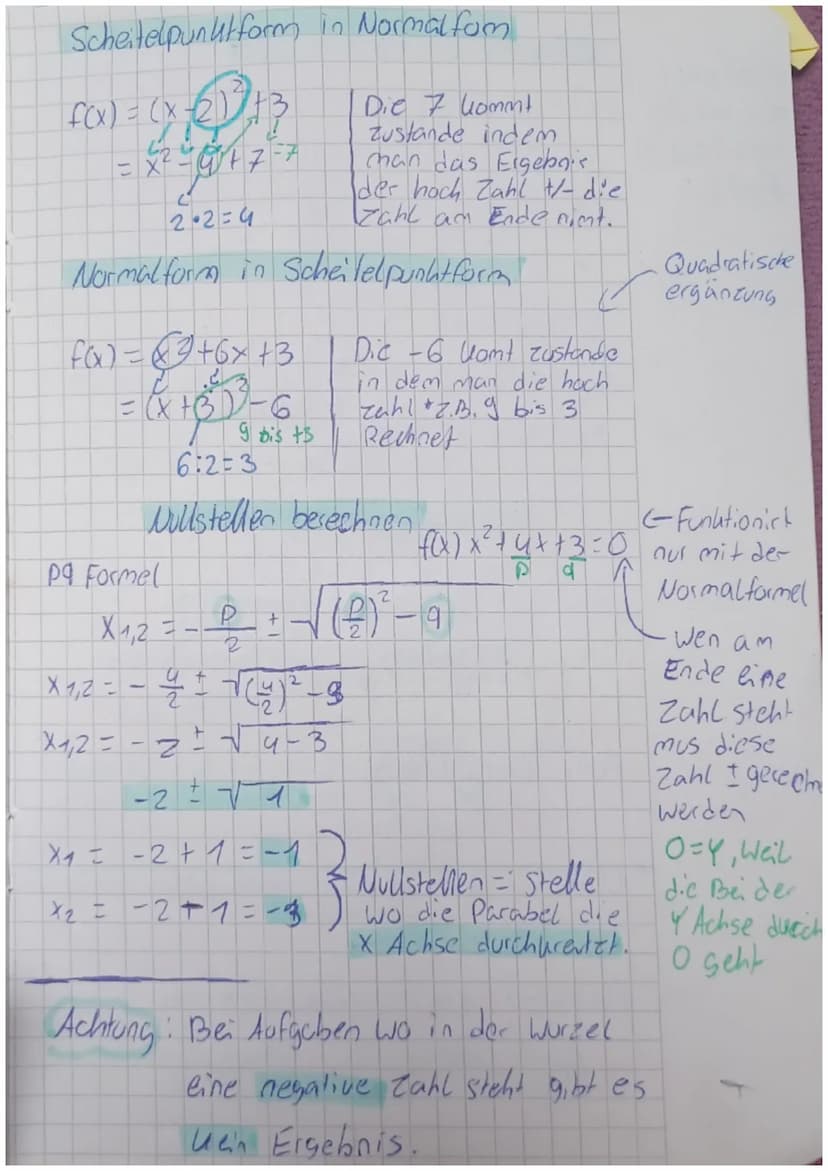 Scheitelpunktform in Normalfom
f(x) = (x-2)² +3
= x² - 4 + 7 =7
2·2=4
Die 7 kommt
zustande indem
man das Ergebnis
der hoch Zahl +/- die
Zahl am Ende nimt.
Normalform in Scheitelpunktform
Quadratische
ergänzung
f(x) = x² +6x +3
= (x+3)² -6
9 bis +3
6:2=3
Die -6 komt zustande
in dem man die hoch
zahl z.B. 9 bis 3
Rechnet
Nullstellen berechnen
f(x) x² + 4x + 3 = 0
p q
← Funktionirt
nur mit der
Normalformel
PQ Formel
x1,2 = - p/2 ± √(p/2)² - q
x1,2 = - 4/2 ± √(4/2)² - 3
x1,2 = - 2 ± √4-3
-2 ± √1
x1 = -2 + 1 = -1
x2 = -2 - 1 = -3
Nullstellen = Stelle
wo die Parabel die
x Achse durchkreutzt.
wen am
Ende eine
Zahl steht
mus diese
Zahl ± gerechn
werden
0=Y, weil
die Bei der
Y Achse durch
0 geht
Achtung: Bei Aufgaben wo in der Wurzel
eine negative Zahl steht gibt es
kein Ergebnis.